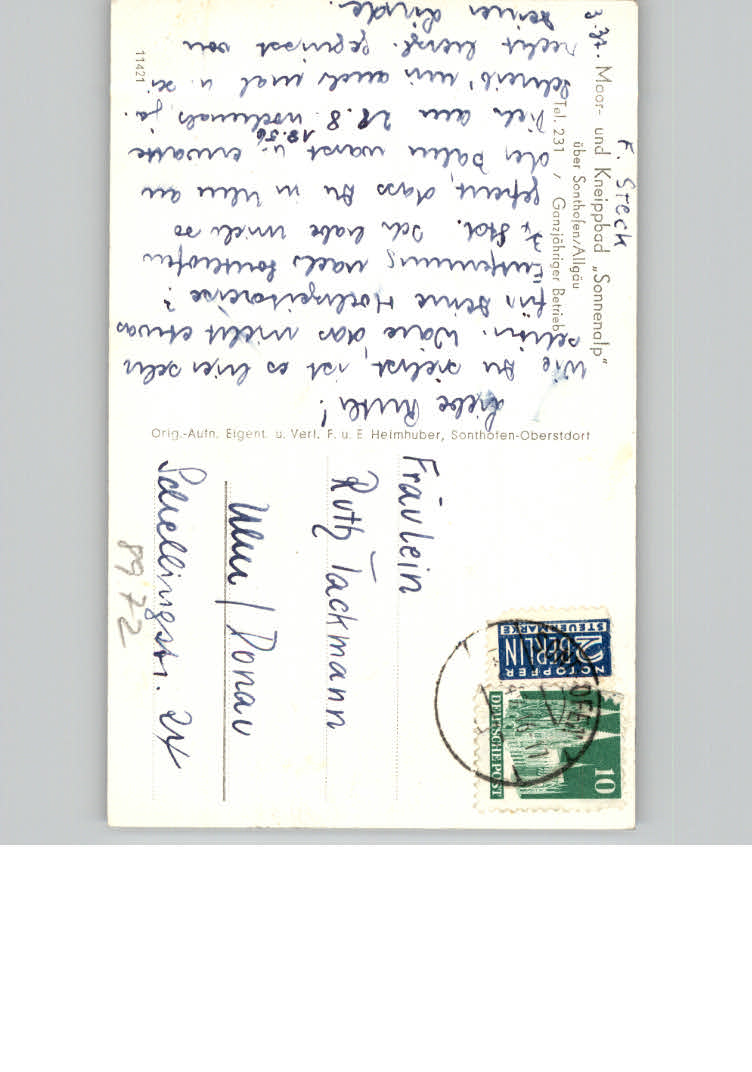 F. Steck
Moor- und Kneippbad „Sonnenalp"
über Sonthofen/Allgäu
Tel. 231 / Ganzjähriger Betrieb
3.37.
11421
Liebe Ruth!
Wie Du siehst, ist es hier sehr
schön. Wäre das nicht etwas
für Deine Hochzeitsreise?
Entfernung nach Sonthofen
Std. Ich habe mich so
gefreut, dass Du in Ulm an
der Bahn warst u. erwarte
Dich am 28.8. 18.56 nochmals ja.
Schreib' mir auch mal u. sei
recht herzl. gegrüsst von
Deiner Linde.
Orig.-Aufn. Eigent. u. Verl. F. u. E Heimhuber, Sonthofen-Oberstdorf
Fräulein
Ruth Tackmann
Ulm / Donau
Schellingstr. 24
8972
NOTOPFER
2 BERLIN
STEUERMARKE
10
DEUTSCHE POST